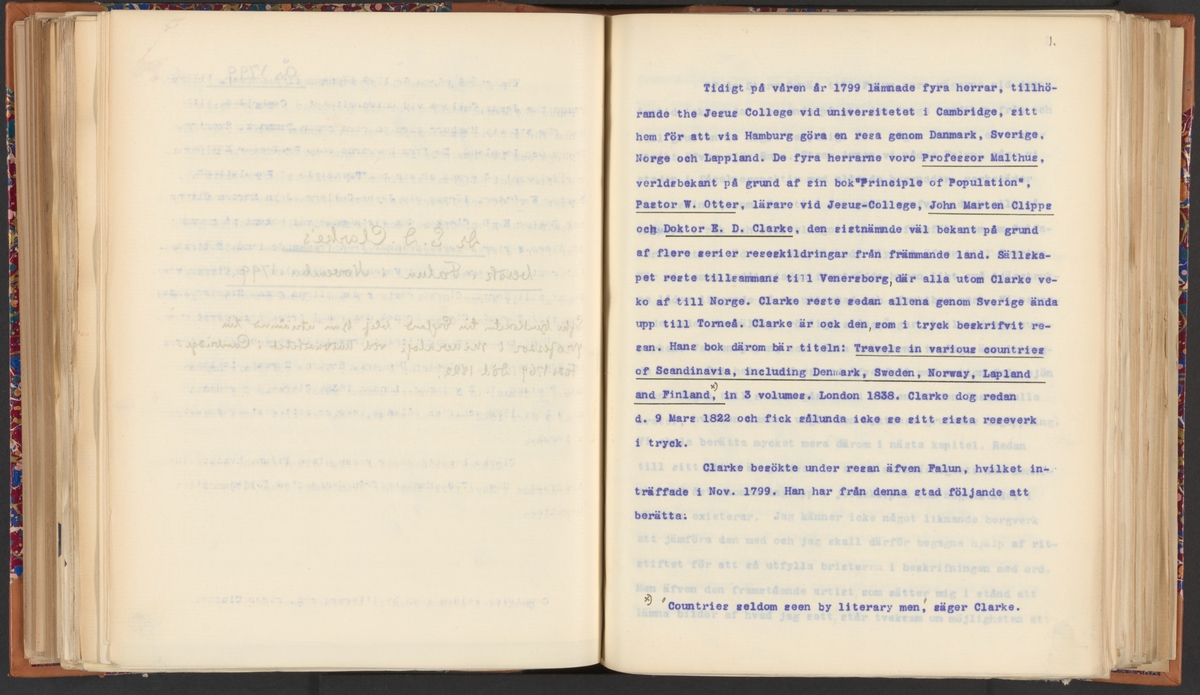 1.
Tidigt på våren år 1799 lämnade fyra herrar, tillhö-
rande the Jesus College vid universitetet i Cambridge, sitt
hem för att via Hamburg göra en resa genom Danmark, Sverige,
Norge och Lappland. De fyra herrarne voro Professor Malthus,
verldsbekant på grund af sin bok"Principle of Population",
Pastor W. Otter, lärare vid Jesus-College, John Marten Clipps
och Doktor E. D. Clarke, den sistnämnde väl bekant på grund
af flere serier reseskildringar från främmande land. Sällska-
pet reste tillsammans till Venersborg, där alla utom Clarke ve-
ko af till Norge. Clarke reste sedan allena genom Sverige ända
upp till Torneå. Clarke är ock den, som i tryck beskrifvit re-
san. Hans bok därom bär titeln: Travels in various countries
of Scandinavia, including Denmark, Sweden, Norway, Lapland
and Finland,x) in 3 volumes, London 1838. Clarke dog redan
d. 9 Mars 1822 och fick sålunda icke se sitt sista reseverk
i tryck.
Clarke besökte under resan äfven Falun, hvilket in-
träffade i Nov. 1799. Han har från denna stad följande att
berätta:
x) "Countries seldom seen by literary men", säger Clarke.